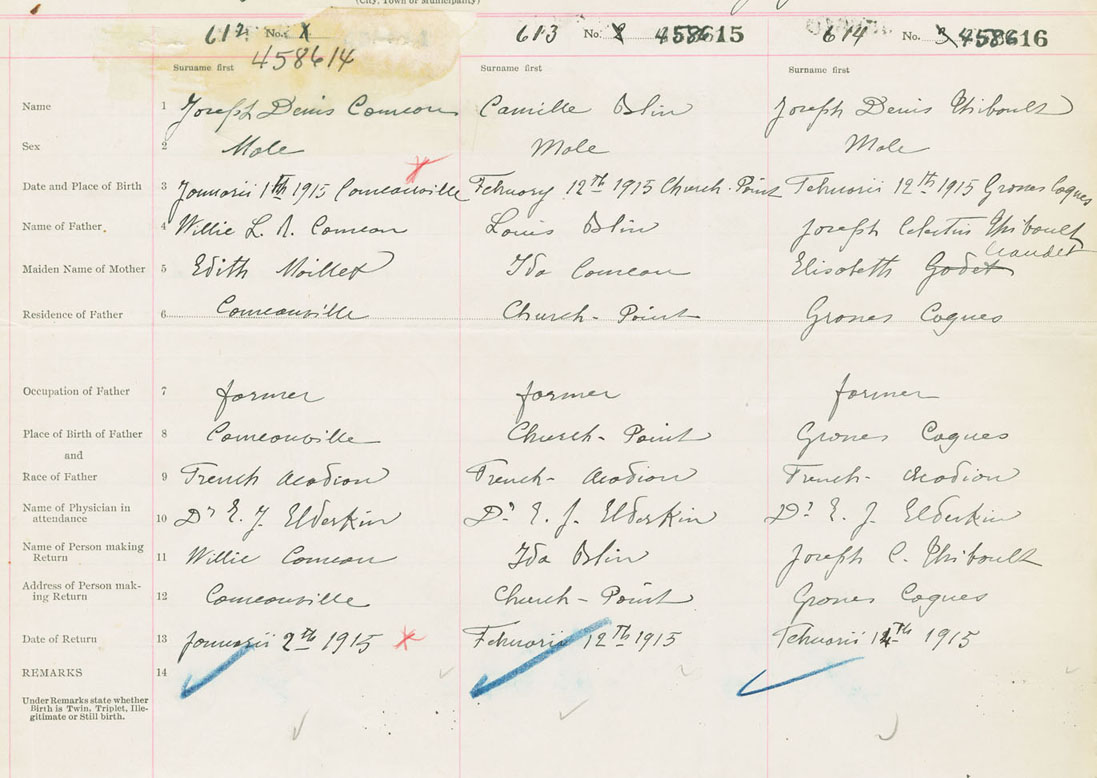 (City, Town or Municipality)
612 No. 1 613 No. 2 45861 5 614 No. 3 458616
458614
Surname first Surname first Surname first
Name 1 Joseph Denis Comeau Camille Blin Joseph Denis Thiboult
Sex 2 Male Male Male
Date and Place of Birth 3 Januarii 1th 1915 Comeauville February 12th 1915 Church-Point Februarii 12th 1915 Groses Coques
Name of Father 4 Willie L. A. Comeau Louis Blin Joseph Celestin Thiboult
Gaudet
Maiden Name of Mother 5 Edith Maillet Ida Comeau Elisabeth Godet
Residence of Father 6 Comeauville Church-Point Groses Coques
Occupation of Father 7 farmer farmer farmer
Place of Birth of Father 8 Comeauville Church-Point Groses Coques
and
Race of Father 9 French Acadian French-Acadian French-Acadian
Name of Physician in
attendance 10 Dr E. J. Elderkin Dr E. J. Elderkin Dr E. J. Elderkin
Name of Person making
Return 11 Willie Comeau Ida Blin Joseph C. Thiboult
Address of Person mak-
ing Return 12 Comeauville Church-Point Groses Coques
Date of Return 13 Januarii 2th 1915 Februarii 12th 1915 Februarii 14th 1915
REMARKS 14
Under Remarks state whether
Birth is Twin, Triplet, Ille-
gitimate or Still birth.